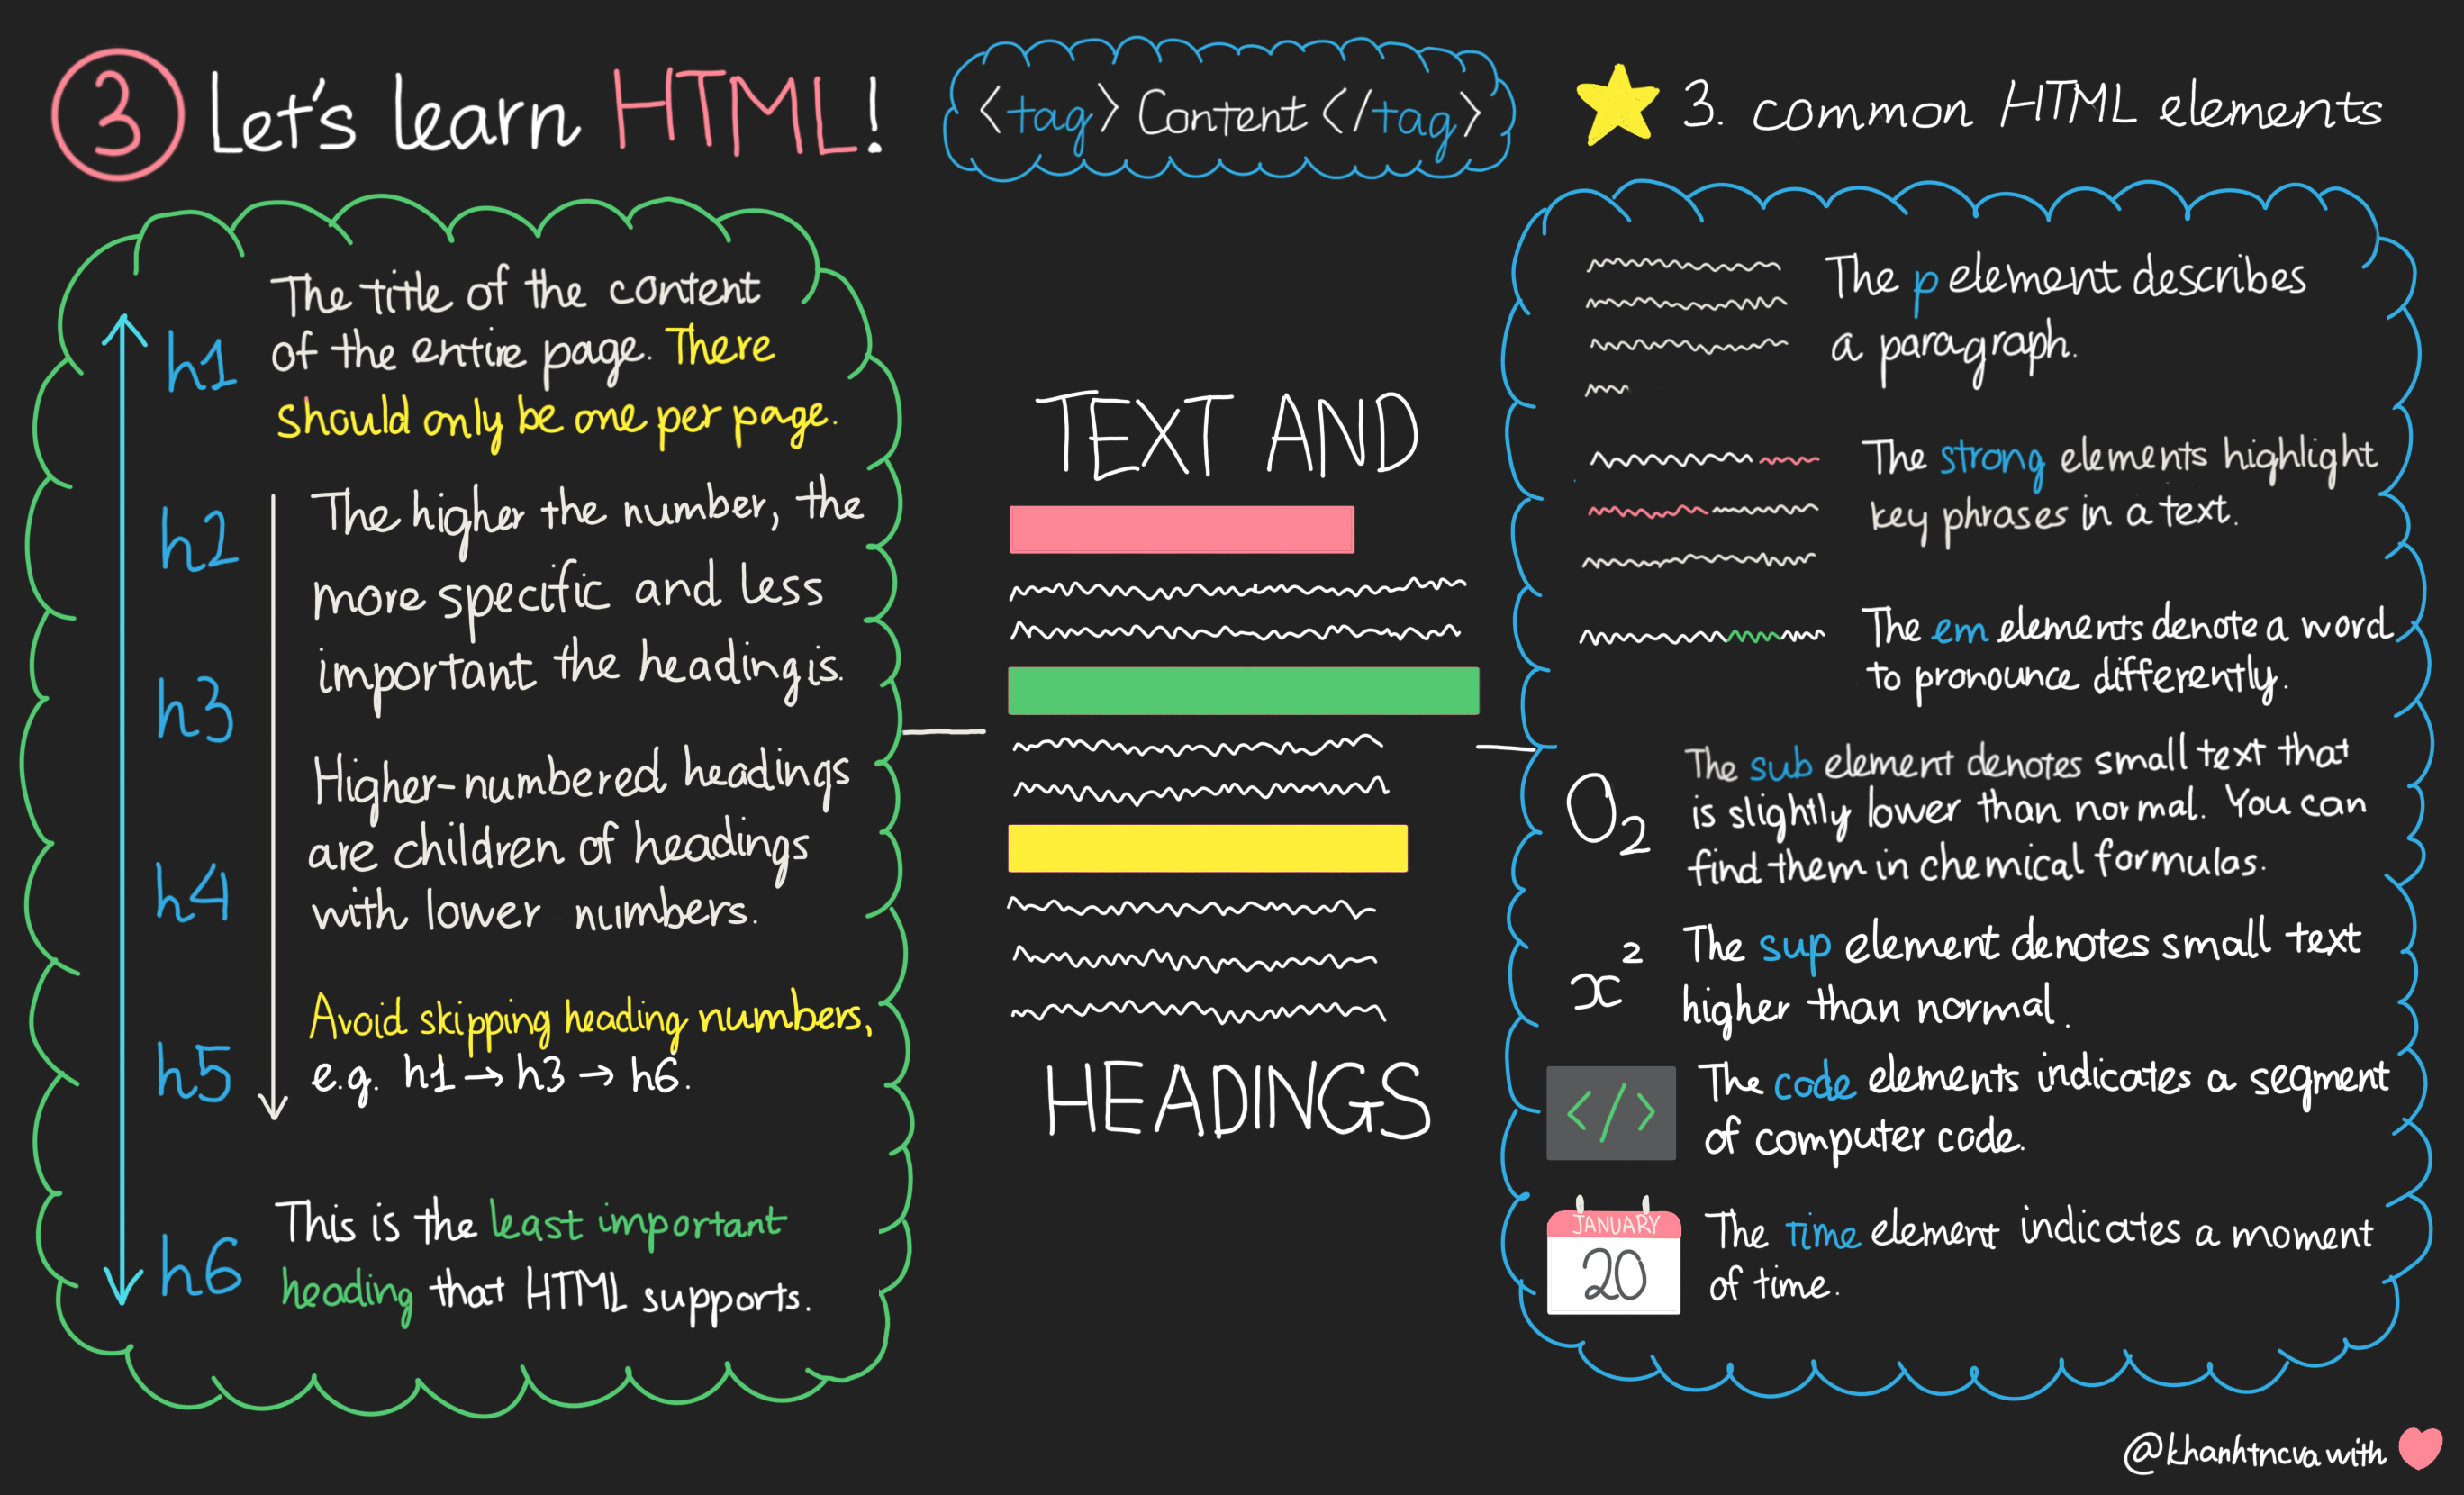 3 Let's learn HTML!
<tag> Content </tag>
3. common HTML elements
h1
The title of the content
of the entire page. There
should only be one per page.
h2
h3
h4
h5
The higher the number, the
more specific and less
important the heading is.
Higher-numbered headings
are children of headings
with lower numbers.
Avoid skipping heading numbers,
e.g. h1 → h3 → h6.
h6
This is the least important
heading that HTML supports.
TEXT AND
HEADINGS
The p element describes
a paragraph.
The strong elements highlight
key phrases in a text.
The em elements denote a word
to pronounce differently.
O₂
The sub element denotes small text that
is slightly lower than normal. You can
find them in chemical formulas.
x²
The sup element denotes small text
higher than normal.
</>
The code elements indicates a segment
of computer code.
JANUARY
20
The time element indicates a moment
of time.
@khanhtncva with